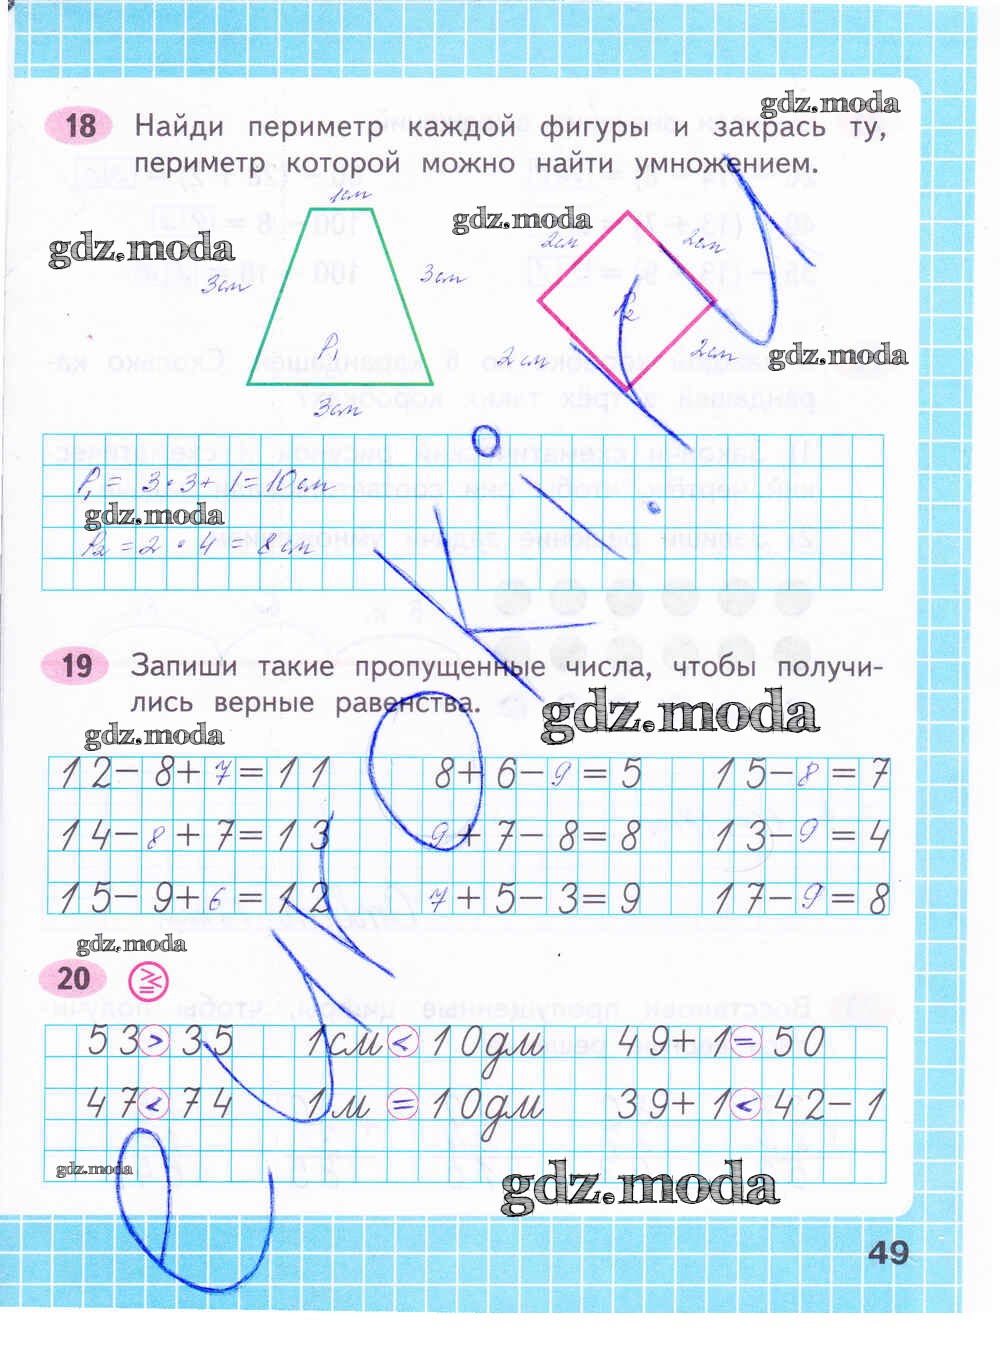 gdz.moda
18 Найди периметр каждой фигуры и закрась ту,
периметр которой можно найти умножением.
1см
gdz.moda
gdz.moda
2см 2см
3см 3см
P₁ P₂
2см 2см
gdz.moda
3см
P₁ = 3·3+1=10см
gdz.moda
P₂ = 2·4 = 8см
19 Запиши такие пропущенные числа, чтобы получи-
лись верные равенства.
gdz.moda
gdz.moda
12-8+7=11 8+6-9=5 15-8=7
14-8+7=13 9+7-8=8 13-9=4
15-9+6=12 7+5-3=9 17-9=8
gdz.moda
20
53>35 1см<10дм 49+1=50
47<74 1м=10дм 39+1<42-1
gdz.moda
gdz.moda
49